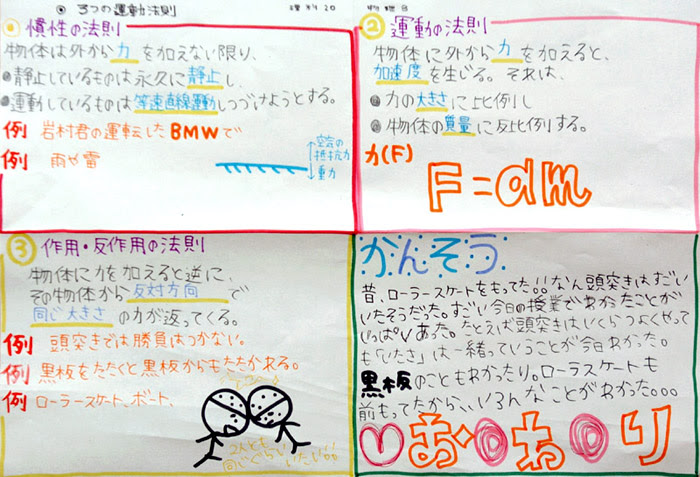 ◎ 3つの運動法則
理科20
① 慣性の法則
物体は外から力を加えない限り、
●静止しているものは永久に静止し、
●運動しているものは等速直線運動しつづけようとする。
例 岩村君の運転したBMWで
例 雨や雷
空気の
抵抗力
重力
② 運動の法則
物体に外から力を加えると、
加速度を生じる。それは、
●力の大きさに比例し
●物体の質量に反比例する。
力(F)
F=am
③ 作用・反作用の法則
物体に力を加えると逆に、
その物体から反対方向で
同じ大きさの力が返ってくる。
例 頭突きでは勝負はつかない。
例 黒板をたたくと黒板からもたたかれる。
例 ローラースケート、ボート、
2人とも
同じぐらい
いたい!!
かんそう
昔、ローラースケートをもってた!!なん頭突きはすごい
いたそうだった。すごい今日の授業でわかったことがい
っぱいあった。たとえば頭突きはいくらつよくやって
も「いたさ」は一緒っていうことが今日わかった。
黒板のこともわかったり。ローラスケートも
前もってたから、いろんなことがわかった。。。
お・わ・り